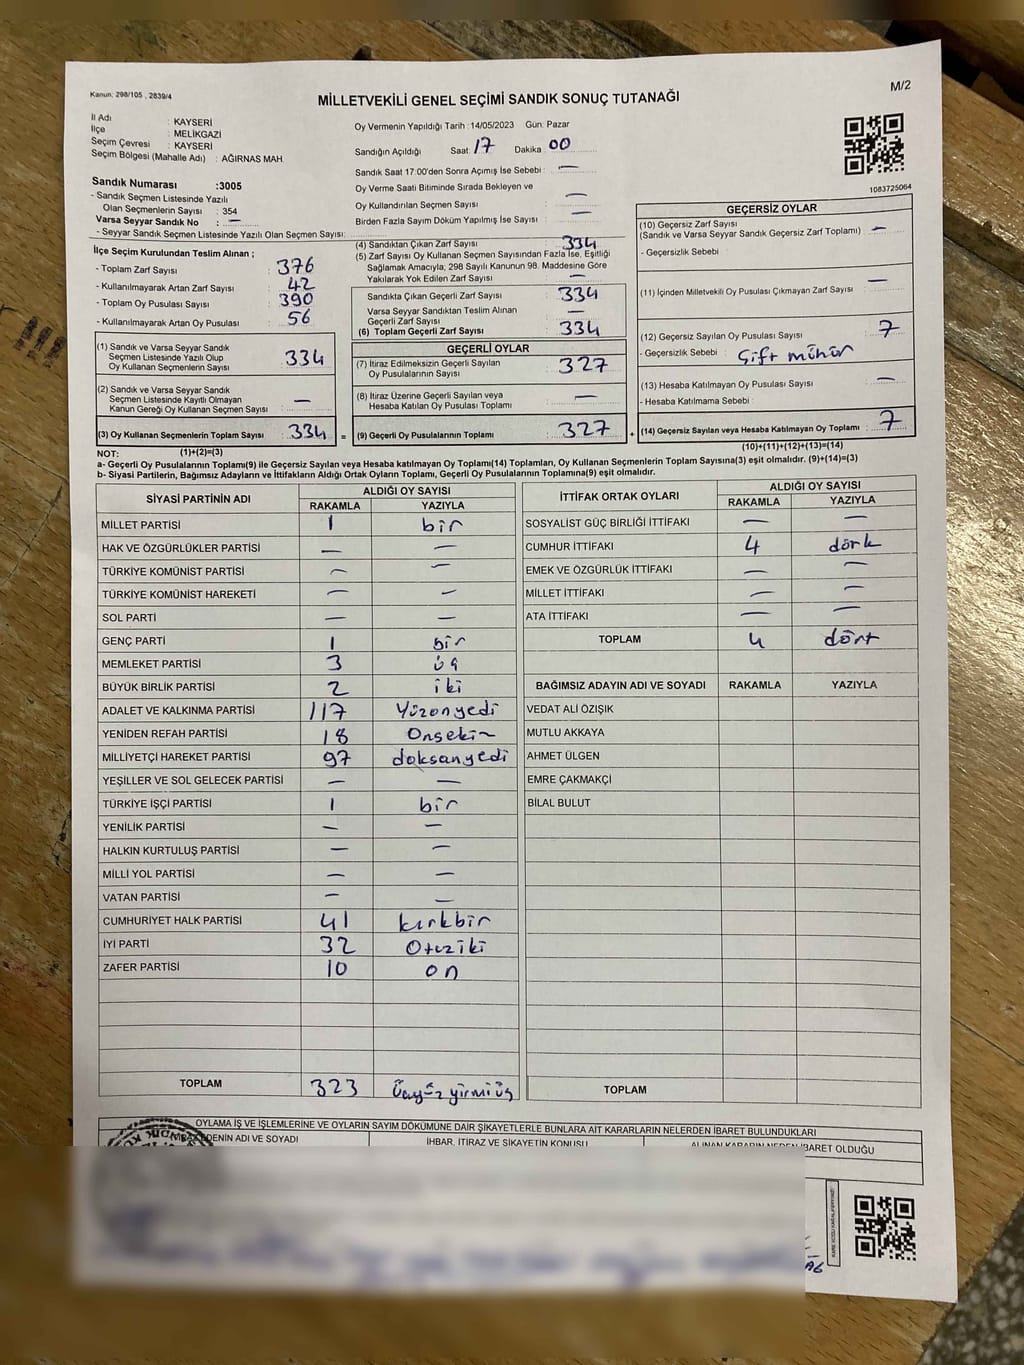 Kanun: 298/105 , 2839/4
M/2
MİLLETVEKİLİ GENEL SEÇİMİ SANDIK SONUÇ TUTANAĞI
İl Adı : KAYSERİ
İlçe : MELİKGAZİ
Seçim Çevresi : KAYSERİ
Seçim Bölgesi (Mahalle Adı) : AĞIRNAS MAH.
Sandık Numarası :3005
- Sandık Seçmen Listesinde Yazılı
Olan Seçmenlerin Sayısı : 354
Varsa Seyyar Sandık No : —
- Seyyar Sandık Seçmen Listesinde Yazılı Olan Seçmen Sayısı:
Oy Vermenin Yapıldığı Tarih :14/05/2023 Gün: Pazar
Sandığın Açıldığı Saat: 17 Dakika: 00
Sandık Saat 17:00'den Sonra Açımış İse Sebebi : —
Oy Verme Saati Bitiminde Sırada Bekleyen ve
Oy Kullandırılan Seçmen Sayısı : —
Birden Fazla Sayım Döküm Yapılmış İse Sayısı : —
1083725064
İlçe Seçim Kurulundan Teslim Alınan ;
- Toplam Zarf Sayısı : 376
- Kullanılmayarak Artan Zarf Sayısı : 42
- Toplam Oy Pusulası Sayısı : 390
- Kullanılmayarak Artan Oy Pusulası : 56
(1) Sandık ve Varsa Seyyar Sandık
Seçmen Listesinde Yazılı Olup
Oy Kullanan Seçmenlerin Sayısı : 334
(2) Sandık ve Varsa Seyyar Sandık
Seçmen Listesinde Kayıtlı Olmayan
Kanun Gereği Oy Kullanan Seçmen Sayısı : —
(3) Oy Kullanan Seçmenlerin Toplam Sayısı : 334 =
(4) Sandıktan Çıkan Zarf Sayısı : 334
(5) Zarf Sayısı Oy Kullanan Seçmen Sayısından Fazla İse, Eşitliği
Sağlamak Amacıyla; 298 Sayılı Kanunun 98. Maddesine Göre
Yakılarak Yok Edilen Zarf Sayısı : —
Sandıkta Çıkan Geçerli Zarf Sayısı : 334
Varsa Seyyar Sandıktan Teslim Alınan
Geçerli Zarf Sayısı : —
(6) Toplam Geçerli Zarf Sayısı : 334
GEÇERLİ OYLAR
(7) İtiraz Edilmeksizin Geçerli Sayılan
Oy Pusulalarının Sayısı : 327
(8) İtiraz Üzerine Geçerli Sayılan veya
Hesaba Katılan Oy Pusulası Toplamı : —
(9) Geçerli Oy Pusulalarının Toplamı : 327 +
GEÇERSİZ OYLAR
(10) Geçersiz Zarf Sayısı
(Sandık ve Varsa Seyyar Sandık Geçersiz Zarf Toplamı) : —
- Geçersizlik Sebebi :
(11) İçinden Milletvekili Oy Pusulası Çıkmayan Zarf Sayısı : —
(12) Geçersiz Sayılan Oy Pusulası Sayısı : 7
- Geçersizlik Sebebi : Çift mühür
(13) Hesaba Katılmayan Oy Pusulası Sayısı : —
- Hesaba Katılmama Sebebi :
(14) Geçersiz Sayılan veya Hesaba Katılmayan Oy Toplamı : 7
NOT: (1)+(2)=(3) (10)+(11)+(12)+(13)=(14)
a- Geçerli Oy Pusulalarının Toplamı(9) ile Geçersiz Sayılan veya Hesaba katılmayan Oy Toplamı(14) Toplamları, Oy Kullanan Seçmenlerin Toplam Sayısına(3) eşit olmalıdır. (9)+(14)=(3)
b- Siyasi Partilerin, Bağımsız Adayların ve İttifakların Aldığı Ortak Oyların Toplamı, Geçerli Oy Pusulalarının Toplamına(9) eşit olmalıdır.
SİYASİ PARTİNİN ADI ALDIĞI OY SAYISI
RAKAMLA YAZIYLA
MİLLET PARTİSİ 1 bir
HAK VE ÖZGÜRLÜKLER PARTİSİ — —
TÜRKİYE KOMÜNİST PARTİSİ — —
TÜRKİYE KOMÜNİST HAREKETİ — —
SOL PARTİ — —
GENÇ PARTİ 1 bir
MEMLEKET PARTİSİ 3 üç
BÜYÜK BİRLİK PARTİSİ 2 iki
ADALET VE KALKINMA PARTİSİ 117 Yüzonyedi
YENİDEN REFAH PARTİSİ 18 Onsekiz
MİLLİYETÇİ HAREKET PARTİSİ 97 doksanyedi
YEŞİLLER VE SOL GELECEK PARTİSİ — —
TÜRKİYE İŞÇİ PARTİSİ 1 bir
YENİLİK PARTİSİ — —
HALKIN KURTULUŞ PARTİSİ — —
MİLLİ YOL PARTİSİ — —
VATAN PARTİSİ — —
CUMHURİYET HALK PARTİSİ 41 kırkbir
İYİ PARTİ 32 Otuziki
ZAFER PARTİSİ 10 on
TOPLAM 323 Üçyüz yirmi üç
İTTİFAK ORTAK OYLARI ALDIĞI OY SAYISI
RAKAMLA YAZIYLA
SOSYALİST GÜÇ BİRLİĞİ İTTİFAKI — —
CUMHUR İTTİFAKI 4 dört
EMEK VE ÖZGÜRLÜK İTTİFAKI — —
MİLLET İTTİFAKI — —
ATA İTTİFAKI — —
TOPLAM 4 dört
BAĞIMSIZ ADAYIN ADI VE SOYADI RAKAMLA YAZIYLA
VEDAT ALİ ÖZIŞIK
MUTLU AKKAYA
AHMET ÜLGEN
EMRE ÇAKMAKÇİ
BİLAL BULUT
TOPLAM
OYLAMA İŞ VE İŞLEMLERİNE VE OYLARIN SAYIM DÖKÜMÜNE DAİR ŞİKAYETLERLE BUNLARA AİT KARARLARIN NELERDEN İBARET BULUNDUKLARI
EDENİN ADI VE SOYADI İHBAR, İTİRAZ VE ŞİKAYETİN KONUSU ALINAN KARARIN NEDEN İBARET OLDUĞU